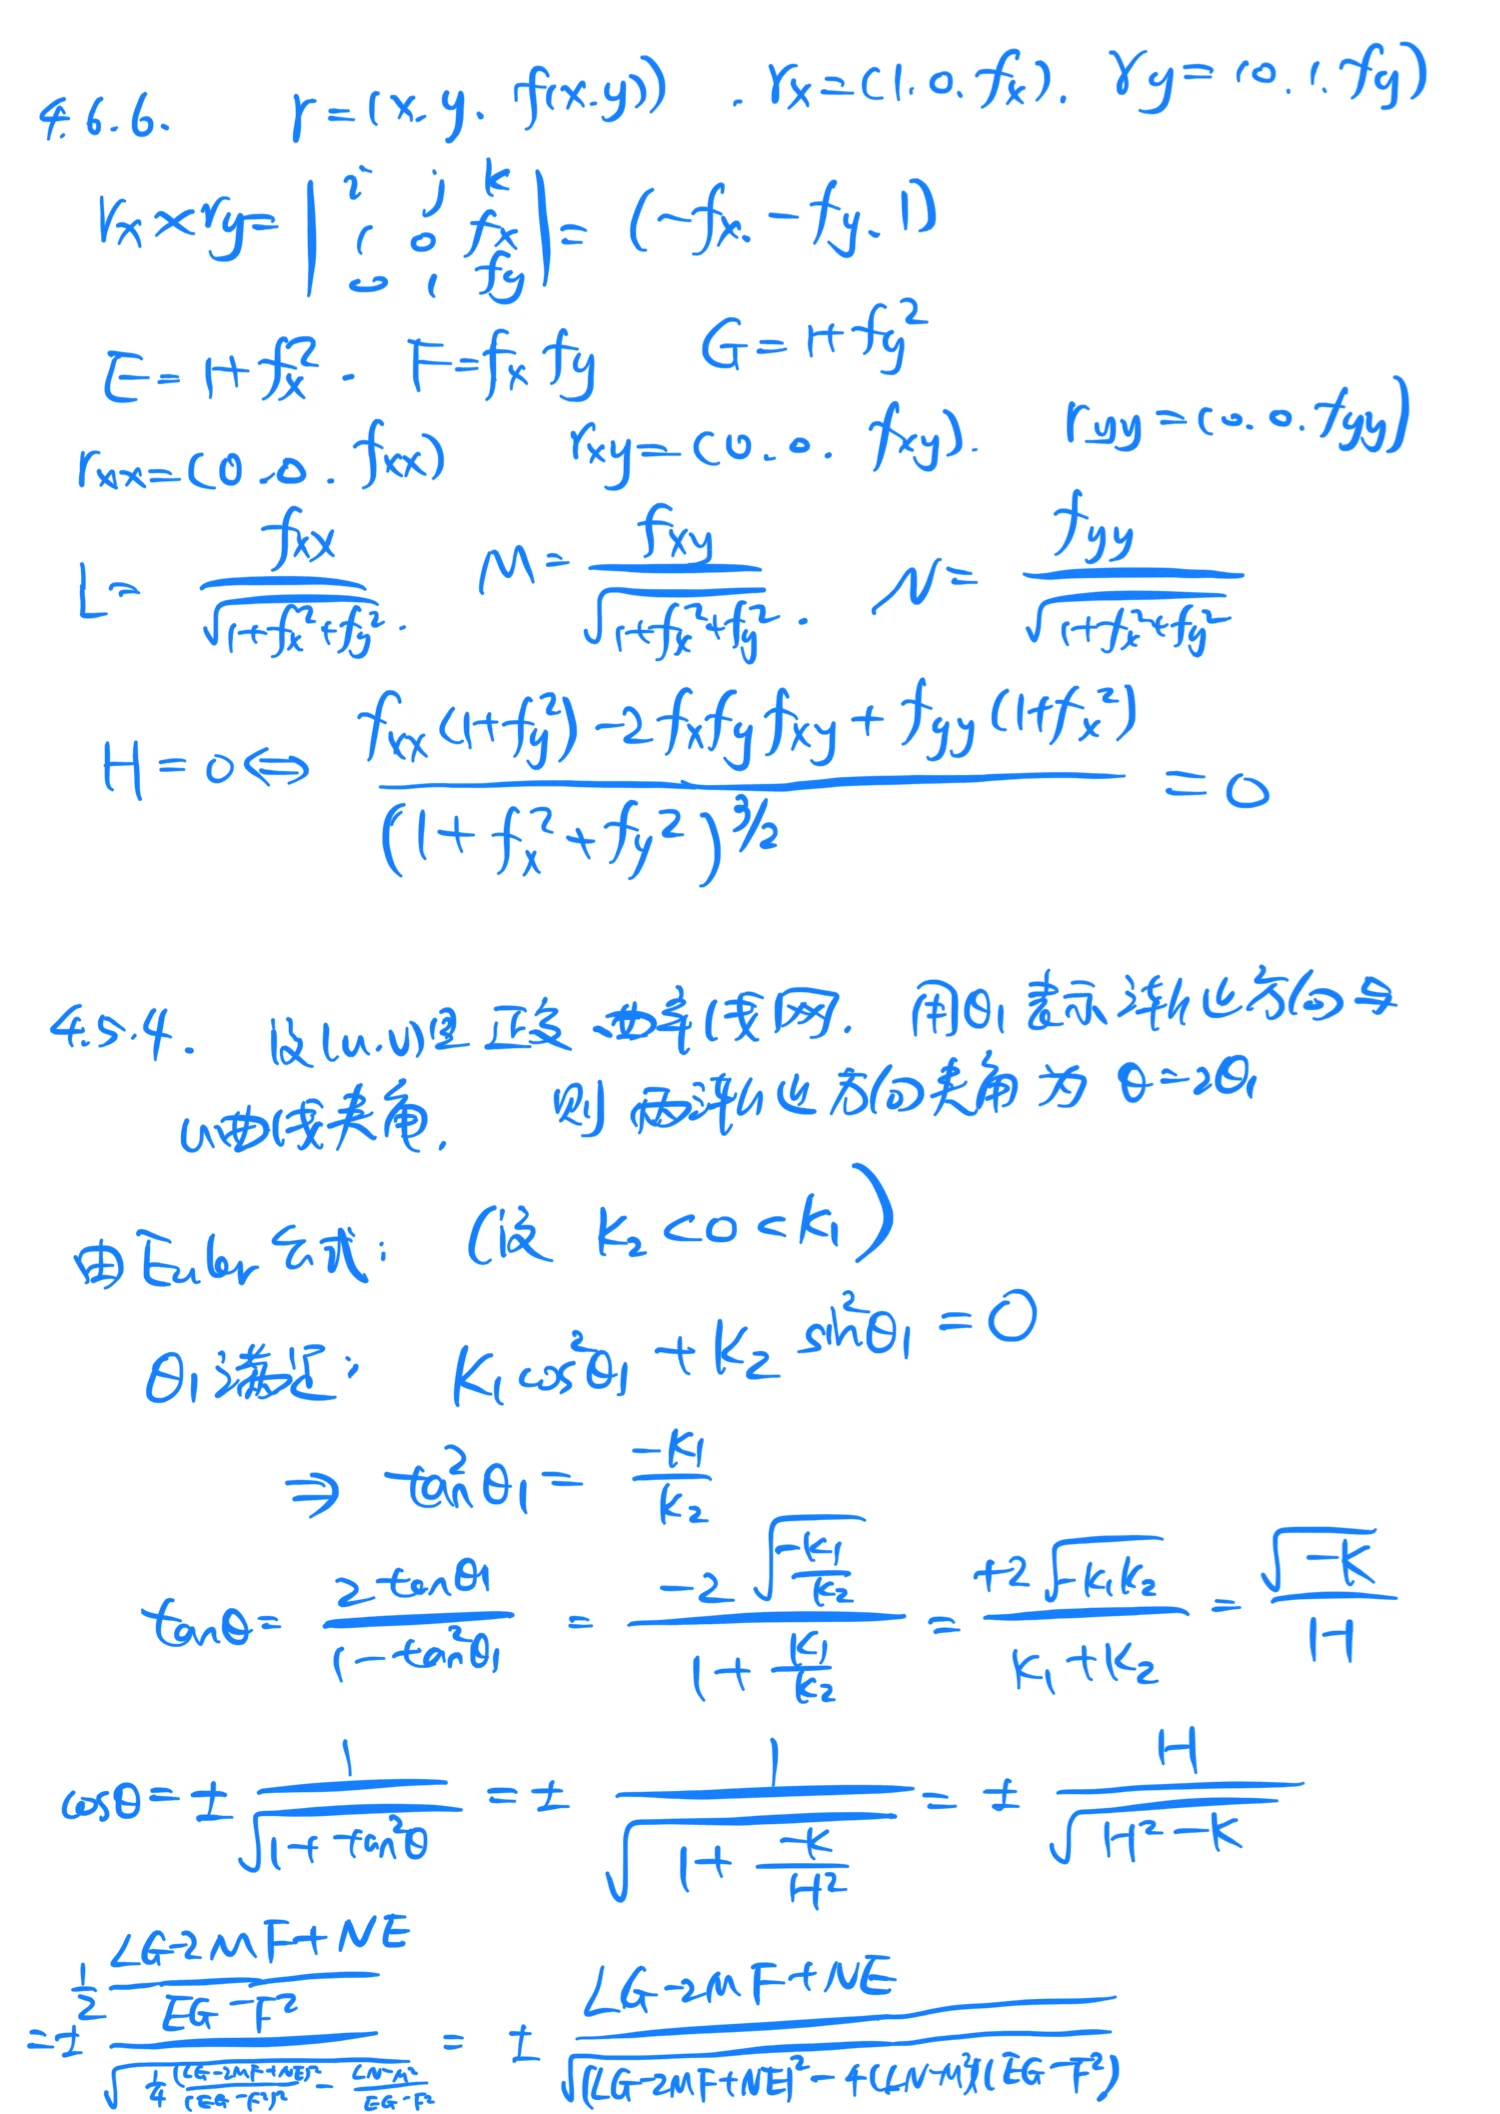 4.6.6. r=(x.y.f(x.y)) . r_x=(1.0.f_x). r_y=(0.1.f_y)
r_x×r_y= | i j k ; 1 0 f_x ; 0 1 f_y | = (-f_x. -f_y. 1)
E=1+f_x^2. F=f_x f_y G=1+f_y^2
r_xx=(0.0.f_xx) r_xy=(0.0.f_xy). r_yy=(0.0.f_yy)
L= f_xx/√(1+f_x^2+f_y^2). M= f_xy/√(1+f_x^2+f_y^2). N= f_yy/√(1+f_x^2+f_y^2)
H=0⇔ (f_xx(1+f_y^2)-2f_xf_yf_xy+f_yy(1+f_x^2))/(1+f_x^2+f_y^2)^{3/2} =0
4.5.4. 设(u.v)是正交曲率线网. 用θ₁表示渐近方向与
u曲线夹角. 则两渐近方向夹角为 θ=2θ₁
由Euler公式: (设 k₂<0<k₁)
θ₁满足: k₁cos²θ₁+k₂sin²θ₁=0
⇒ tan²θ₁= -k₁/k₂
tanθ= 2tanθ₁/(1-tan²θ₁) = -2√(-k₁/k₂)/(1+k₁/k₂) = +2√(-k₁k₂)/(k₁+k₂) = √(-K)/H
cosθ=± 1/√(1+tan²θ) =± 1/√(1+(-K)/H²) = ± H/√(H²-K)
=± (1/2 (LG-2MF+NE)/(EG-F²))/√(1/4 (LG-2MF+NE)²/(EG-F²)² - (LN-M²)/(EG-F²)) = ± (LG-2MF+NE)/√((LG-2MF+NE)²-4(LN-M²)(EG-F²))